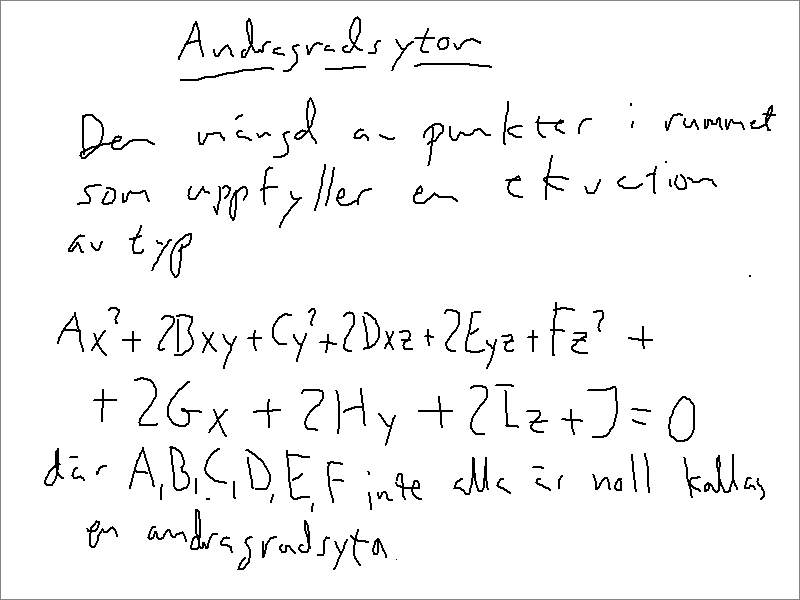 Andragradsytor
Den mängd av punkter i rummet
som uppfyller en ekvation
av typ
Ax² + 2Bxy + Cy² + 2Dxz + 2Eyz + Fz² +
+ 2Gx + 2Hy + 2Iz + J = 0
där A, B, C, D, E, F inte alla är noll kallas
en andragradsyta.